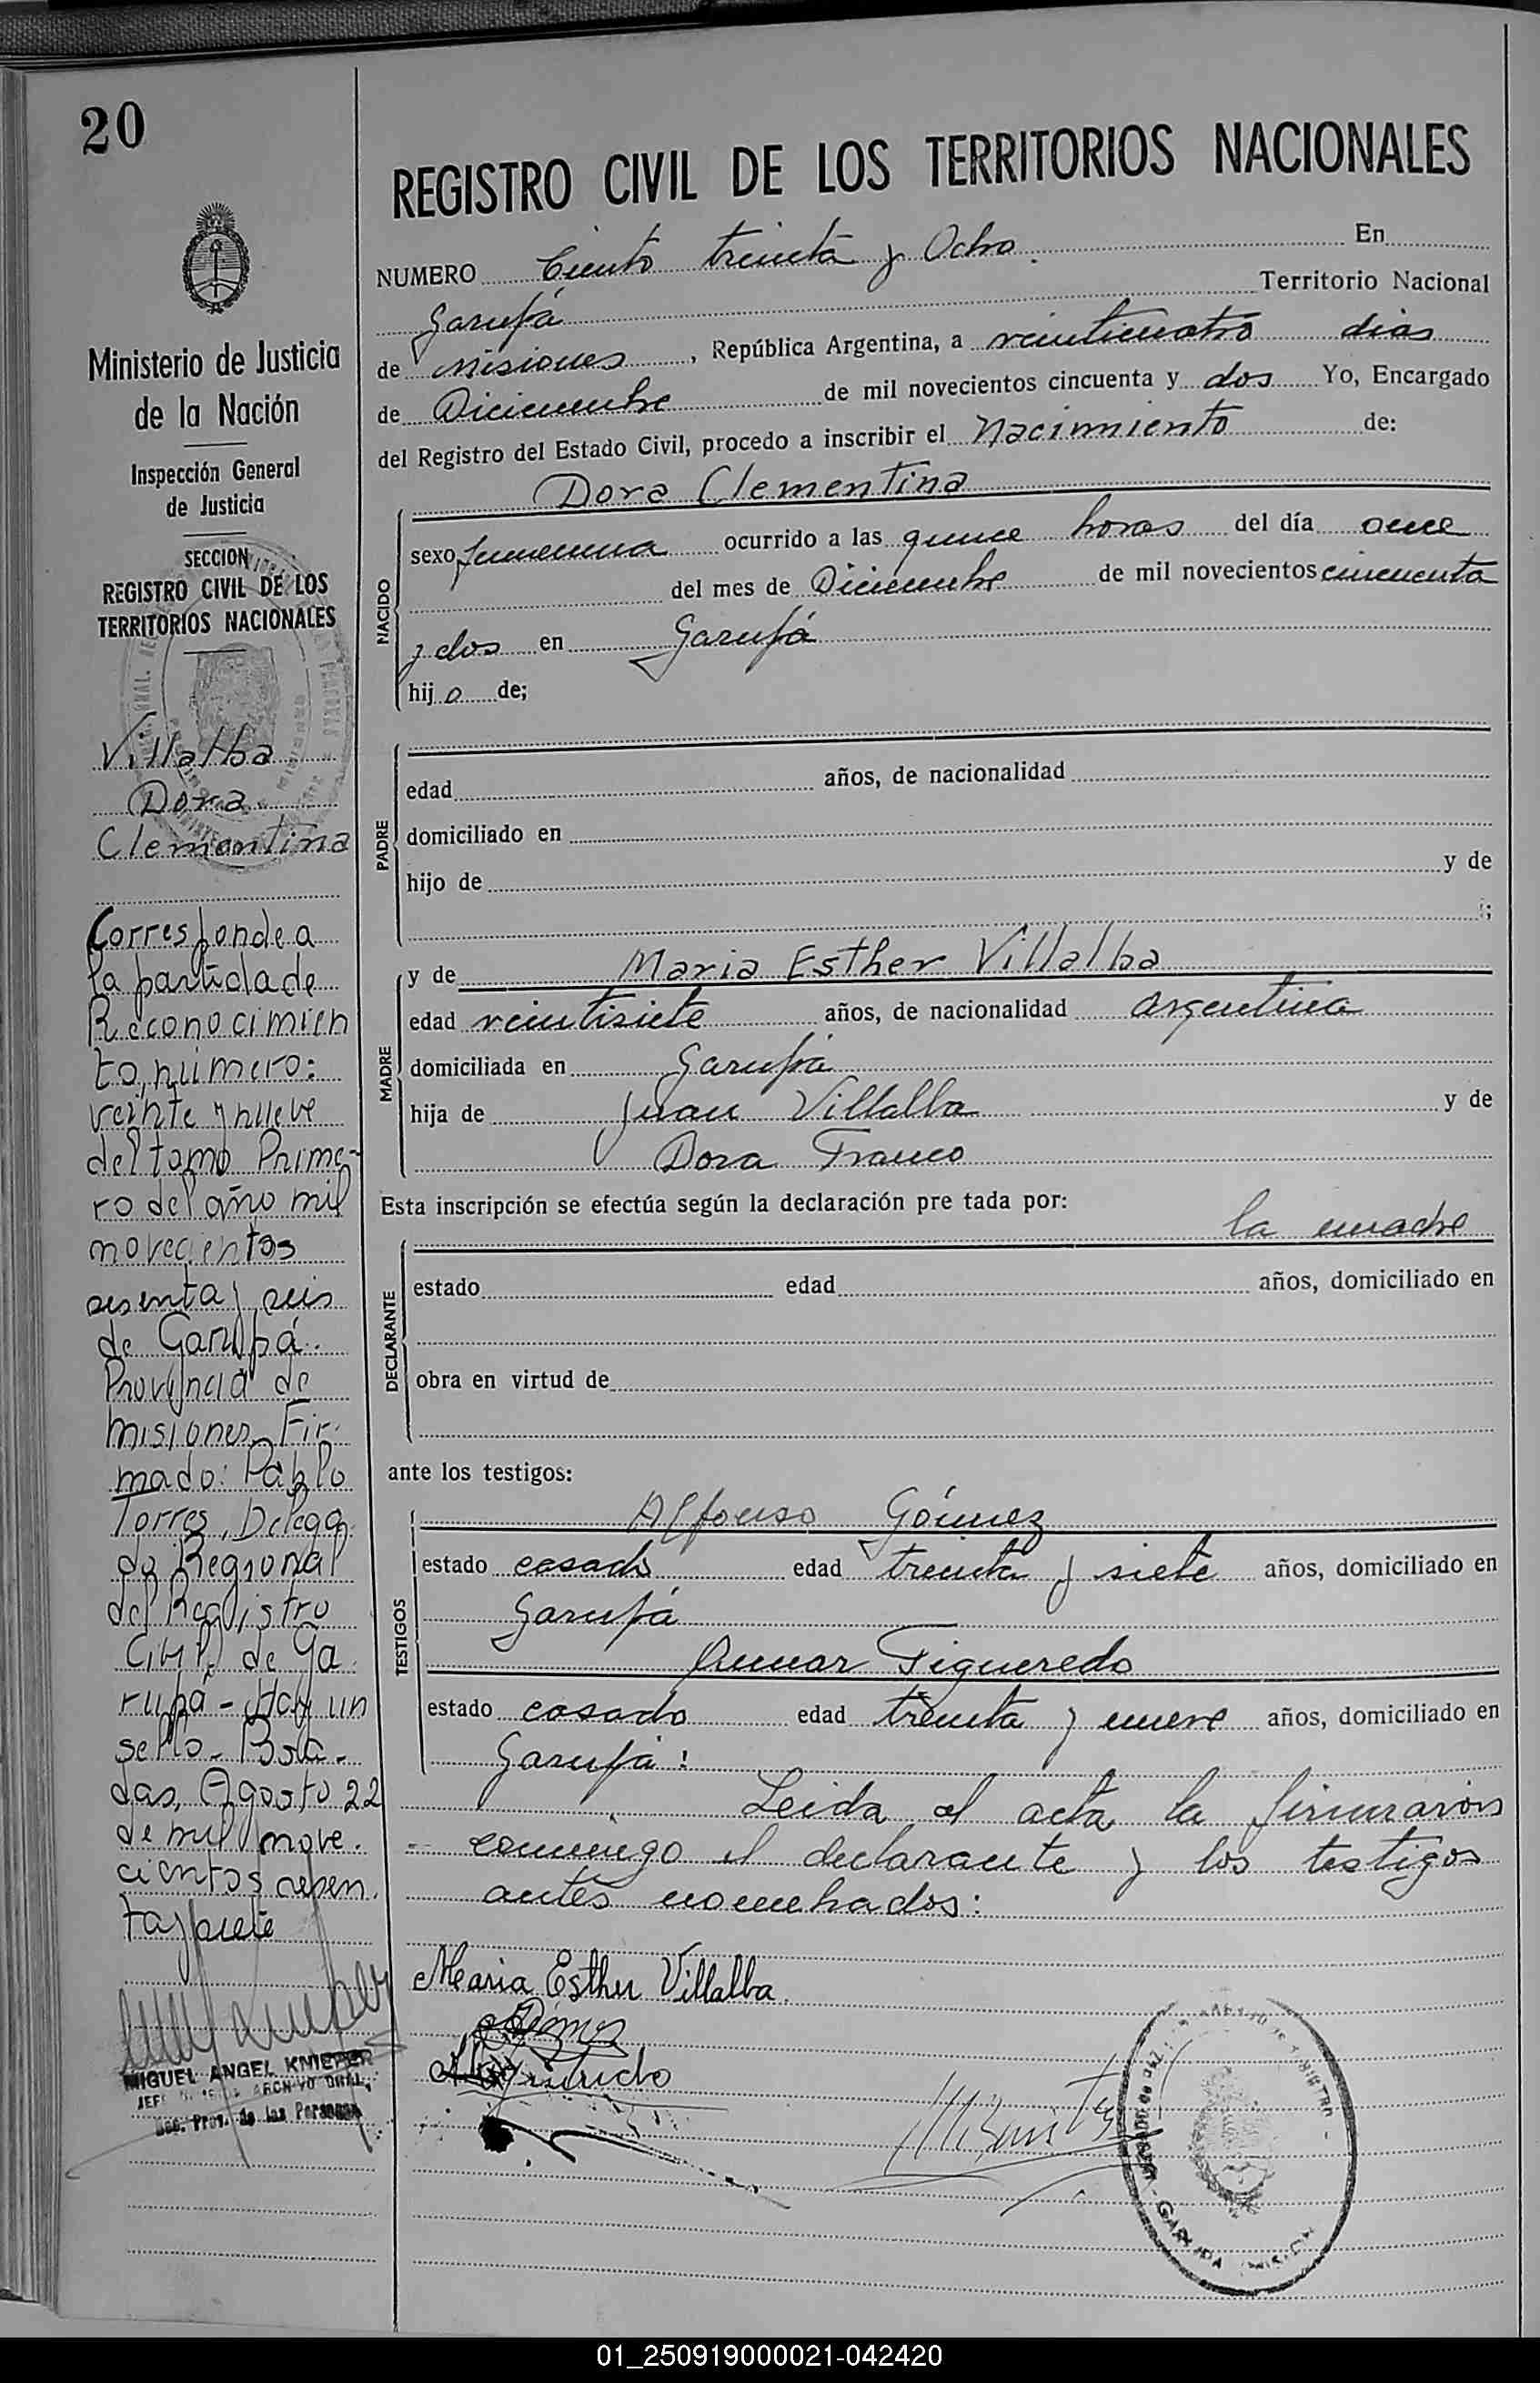 20
Ministerio de Justicia
de la Nación
Inspección General
de Justicia
SECCION
REGISTRO CIVIL DE LOS
TERRITORIOS NACIONALES
Villalba
Dora
Clementina
Corresponde a
la partida de
Reconocimien
to, número:
veinte y nueve
del tomo Prime-
ro del año mil
novecientos
sesenta y seis
de Garupá.
Provincia de
misiones. Fir-
mado: Pablo
Torres, Delega
do Regional
del Registro
Civil, de Ga
rupá - Hay un
sello - Posa-
das, Agosto 22
de mil nove-
cientos sesen-
ta y siete
MIGUEL ANGEL KNIEPER
REGISTRO CIVIL DE LOS TERRITORIOS NACIONALES
NUMERO Ciento treinta y Ocho. En
Garupá Territorio Nacional
de misiones, República Argentina, a veinticuatro dias
de Diciembre de mil novecientos cincuenta y dos Yo, Encargado
del Registro del Estado Civil, procedo a inscribir el Nacimiento de:
Dora Clementina
NACIDO
sexo femenina ocurrido a las quince horas del día once
del mes de Diciembre de mil novecientos cincuenta
y dos en Garupá
hij a de;
PADRE
edad años, de nacionalidad
domiciliado en
hijo de y de
;
MADRE
y de Maria Esther Villalba
edad veintisiete años, de nacionalidad argentina
domiciliada en Garupá
hija de Juan Villalba y de
Dora Franco
Esta inscripción se efectúa según la declaración pre tada por:
la madre
DECLARANTE
estado edad años, domiciliado en
obra en virtud de
ante los testigos:
TESTIGOS
Alfonso Gómez
estado casado edad treinta y siete años, domiciliado en
Garupá
Figueredo
estado casado edad treinta y nueve años, domiciliado en
Garupá:
Leida el acta la firmaron
conmigo el declarante y los testigos
antes nombrados:
Maria Esther Villalba.
01_250919000021-042420